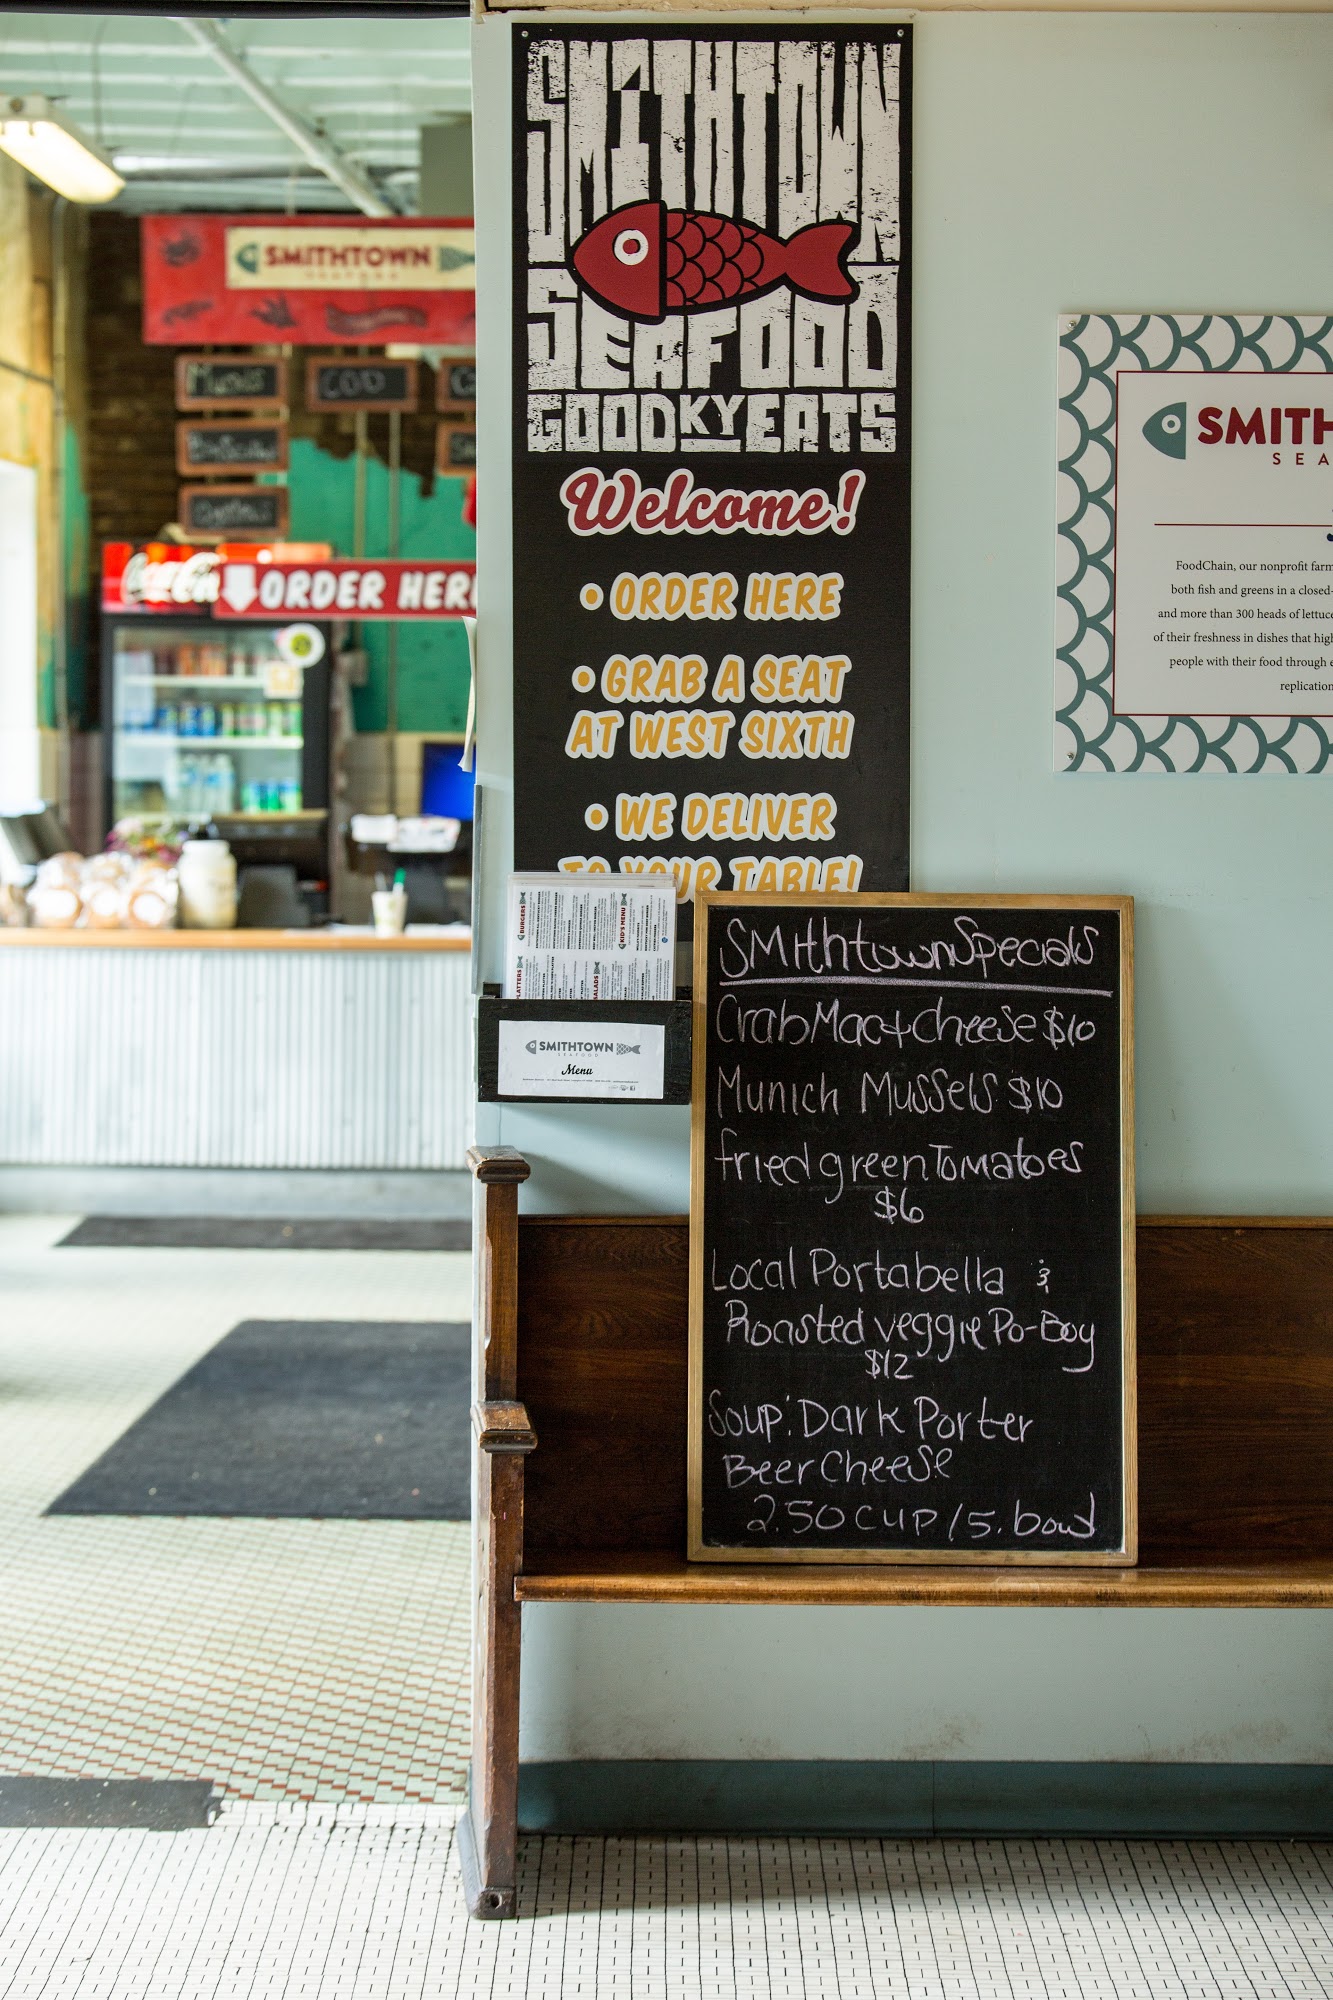 SMITHTOWN
SEAFOOD
COD
Coca-Cola
ORDER HERE
SMITHTOWN
SEAFOOD
GOOD KY EATS
Welcome!
• ORDER HERE
• GRAB A SEAT
AT WEST SIXTH
• WE DELIVER
TO YOUR TABLE!
BURGERS
KID'S MENU
SALADS
SMITHTOWN
SEAFOOD
Menu
Smithtown Specials
Crab Mac + cheese $10
Munich Mussels $10
fried green Tomatoes
$6
Local Portabella &
Roasted veggie Po-Boy
$12
Soup: Dark Porter
Beer Cheese
2.50 cup / 5. bowl
SMITH
SEA
FoodChain, our nonprofit farm
both fish and greens in a closed-
and more than 300 heads of lettuce
of their freshness in dishes that high
people with their food through e
replication